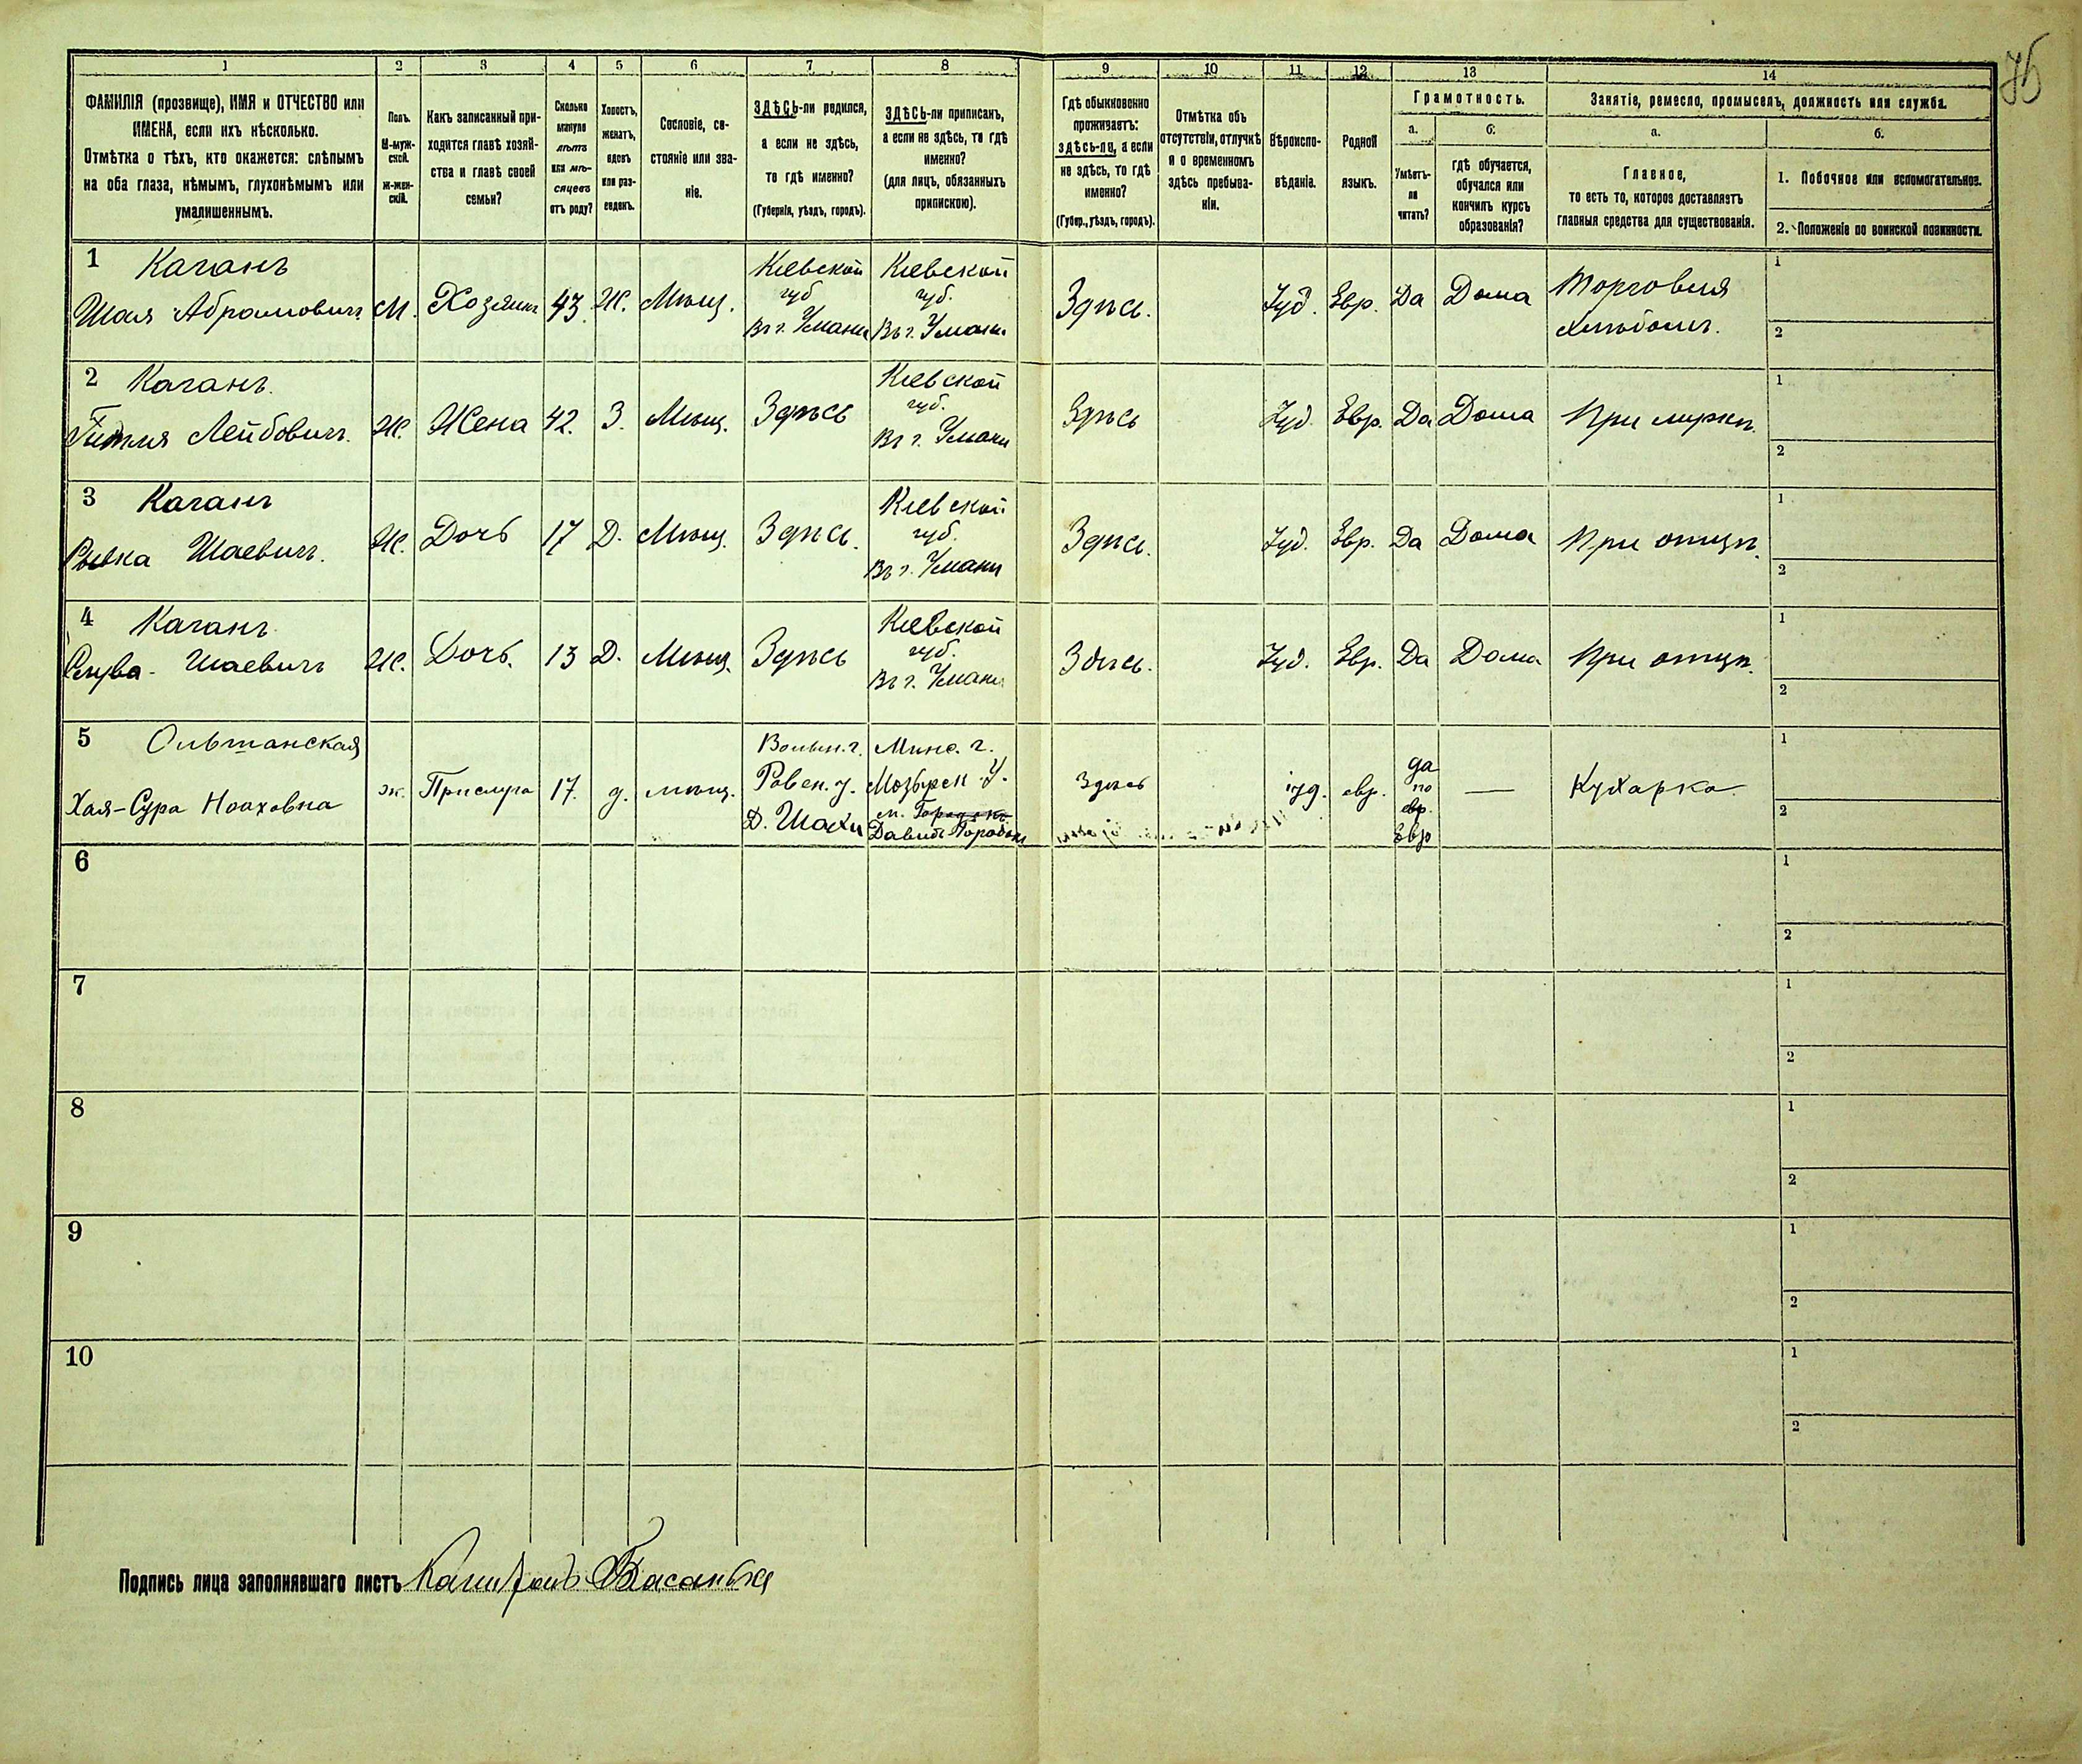 76
1 2 3 4 5 6 7 8 9 10 11 12 13 14
ФАМИЛІЯ (прозвище), ИМЯ и ОТЧЕСТВО или
ИМЕНА, если ихъ нѣсколько.
Отмѣтка о тѣхъ, кто окажется: слѣпымъ
на оба глаза, нѣмымъ, глухонѣмымъ или
умалишеннымъ.
Полъ.
М-муж-
ской.
ж-жен-
скій.
Какъ записанный при-
ходится главѣ хозяй-
ства и главѣ своей
семьи?
Сколько
минуло
лѣтъ
или мѣ-
сяцевъ
отъ роду?
Холостъ,
женатъ,
вдовъ
или раз-
веденъ.
Сословіе, со-
стояніе или зва-
ніе.
ЗДѢСЬ-ли родился,
а если не здѣсь,
то гдѣ именно?
(Губернія, уѣздъ, городъ).
ЗДѢСЬ-ли приписанъ,
а если не здѣсь, то гдѣ
именно?
(для лицъ, обязанныхъ
припискою).
Гдѣ обыкновенно
проживаетъ:
здѣсь-ли, а если
не здѣсь, то гдѣ
именно?
(Губер., уѣздъ, городъ).
Отмѣтка объ
отсутствіи, отлучкѣ
и о временномъ
здѣсь пребыва-
ніи.
Вѣроиспо-
вѣданіе.
Родной
языкъ.
Грамотность.
а.
Умѣетъ-
ли
читать?
б.
гдѣ обучается,
обучался или
кончилъ курсъ
образованія?
Занятіе, ремесло, промыселъ, должность или служба.
а.
Главное,
то есть то, которое доставляетъ
главныя средства для существованія.
б.
1. Побочное или вспомогательное.
2. Положеніе по воинской повинности.
1 Каганъ
Шая Абрамовичъ
М.
Хозяинъ
43
Ж.
Мѣщ.
Кіевской
губ
Въ г. Умани
Кіевской
губ.
Въ г. Умани
Здѣсь.
Іуд.
Евр.
Да
Дома
Торговля
хлѣбомъ.
1
2
2 Каганъ.
Гитля Лейбовичъ.
Ж.
Жена
42.
З.
Мѣщ.
Здѣсь
Кіевской
губ.
Въ г. Умани
Здѣсь
Іуд.
Евр.
Да
Дома
При мужѣ.
1
2
3 Каганъ
Ривка Шаевичъ.
Ж.
Дочь
17
Д.
Мѣщ.
Здѣсь.
Кіевской
губ.
Въ г. Умани
Здѣсь.
Іуд.
Евр.
Да
Дома
При отцѣ.
1
2
4 Каганъ
Шаевичъ
Ж.
Дочь.
13
Д.
Мѣщ.
Здѣсь
Кіевской
губ.
Въ г. Умани
Здѣсь.
Іуд.
Евр.
Да
Дома
При отцѣ.
1
2
5 Ольшанская
Хая-Сура Ноаховна
ж.
Прислуга
17.
д.
мѣщ.
Волын. г.
Ровен. у.
Д. Шахи
Минс. г.
Мозырск. У.
м. Городокъ
Давидъ Городокъ
Здѣсь
іуд.
евр.
да
по
евр.
Евр
—
Кухарка
1
2
6
1
2
7
1
2
8
1
2
9
1
2
10
1
2
Подпись лица заполнявшаго листъ